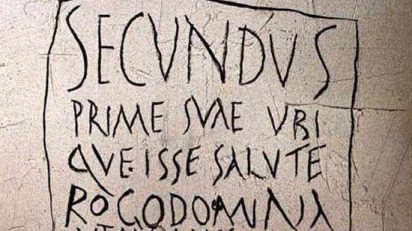 SECVNDVS
PRIME SVAE VBI
QVE·ISSE SALVTE
ROGO DOMINA